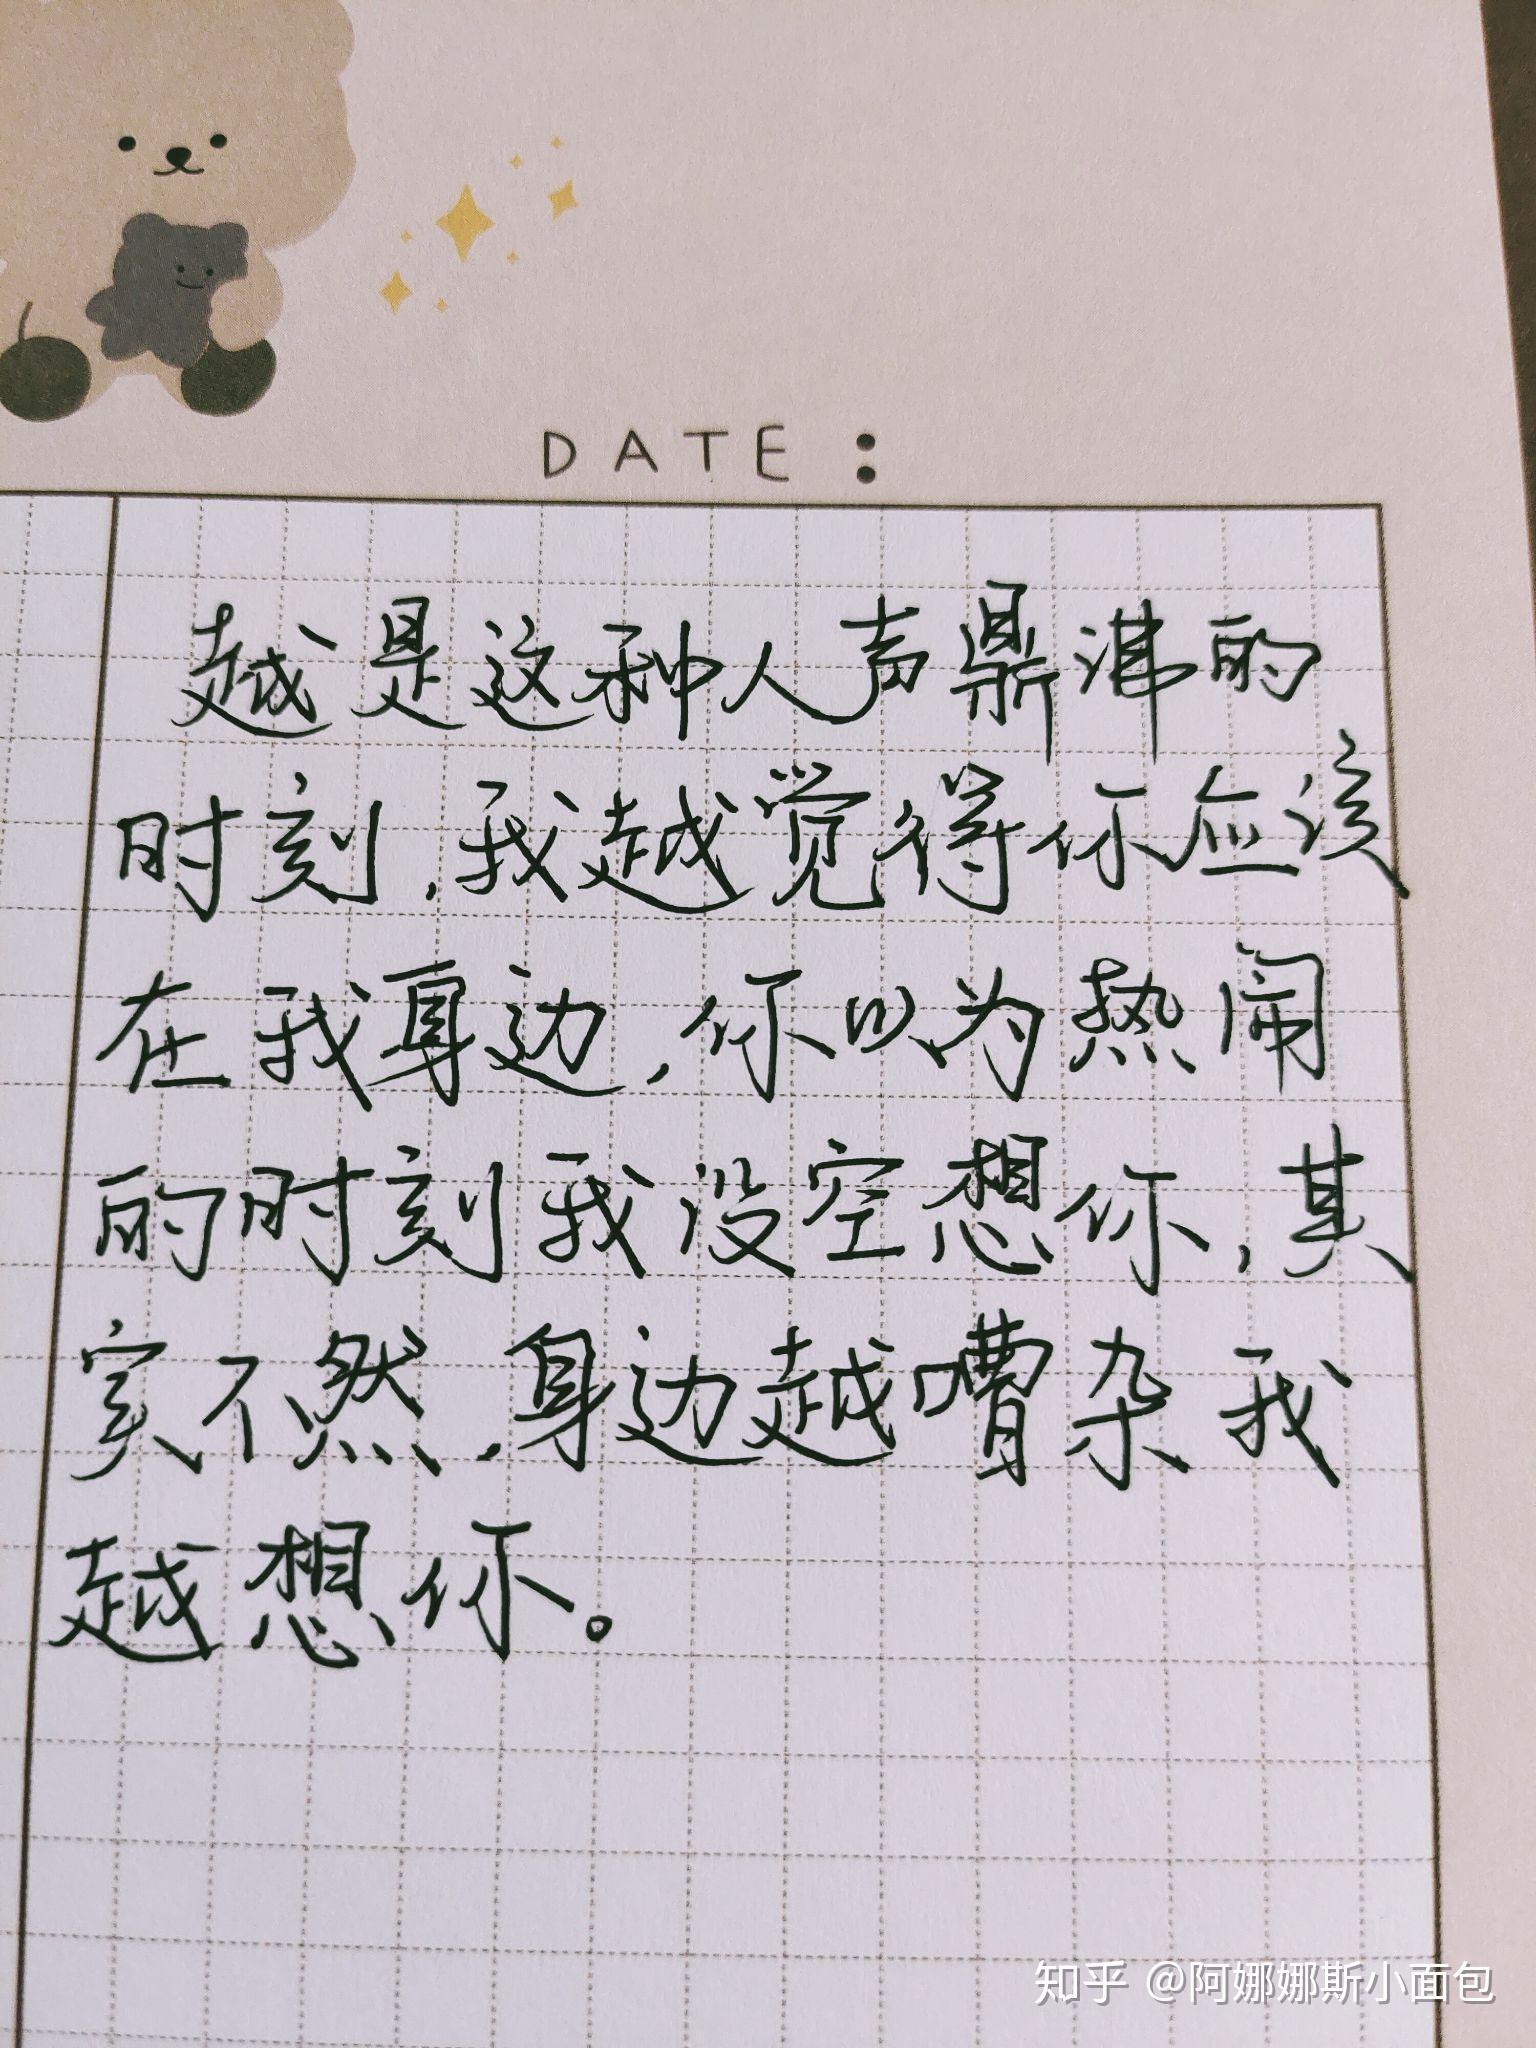 DATE：
越是这种人声鼎沸的
时刻，我越觉得你应该
在我身边，你以为热闹
的时刻我没空想你，其
实不然，身边越嘈杂我
越想你。
知乎 @阿娜娜斯小面包